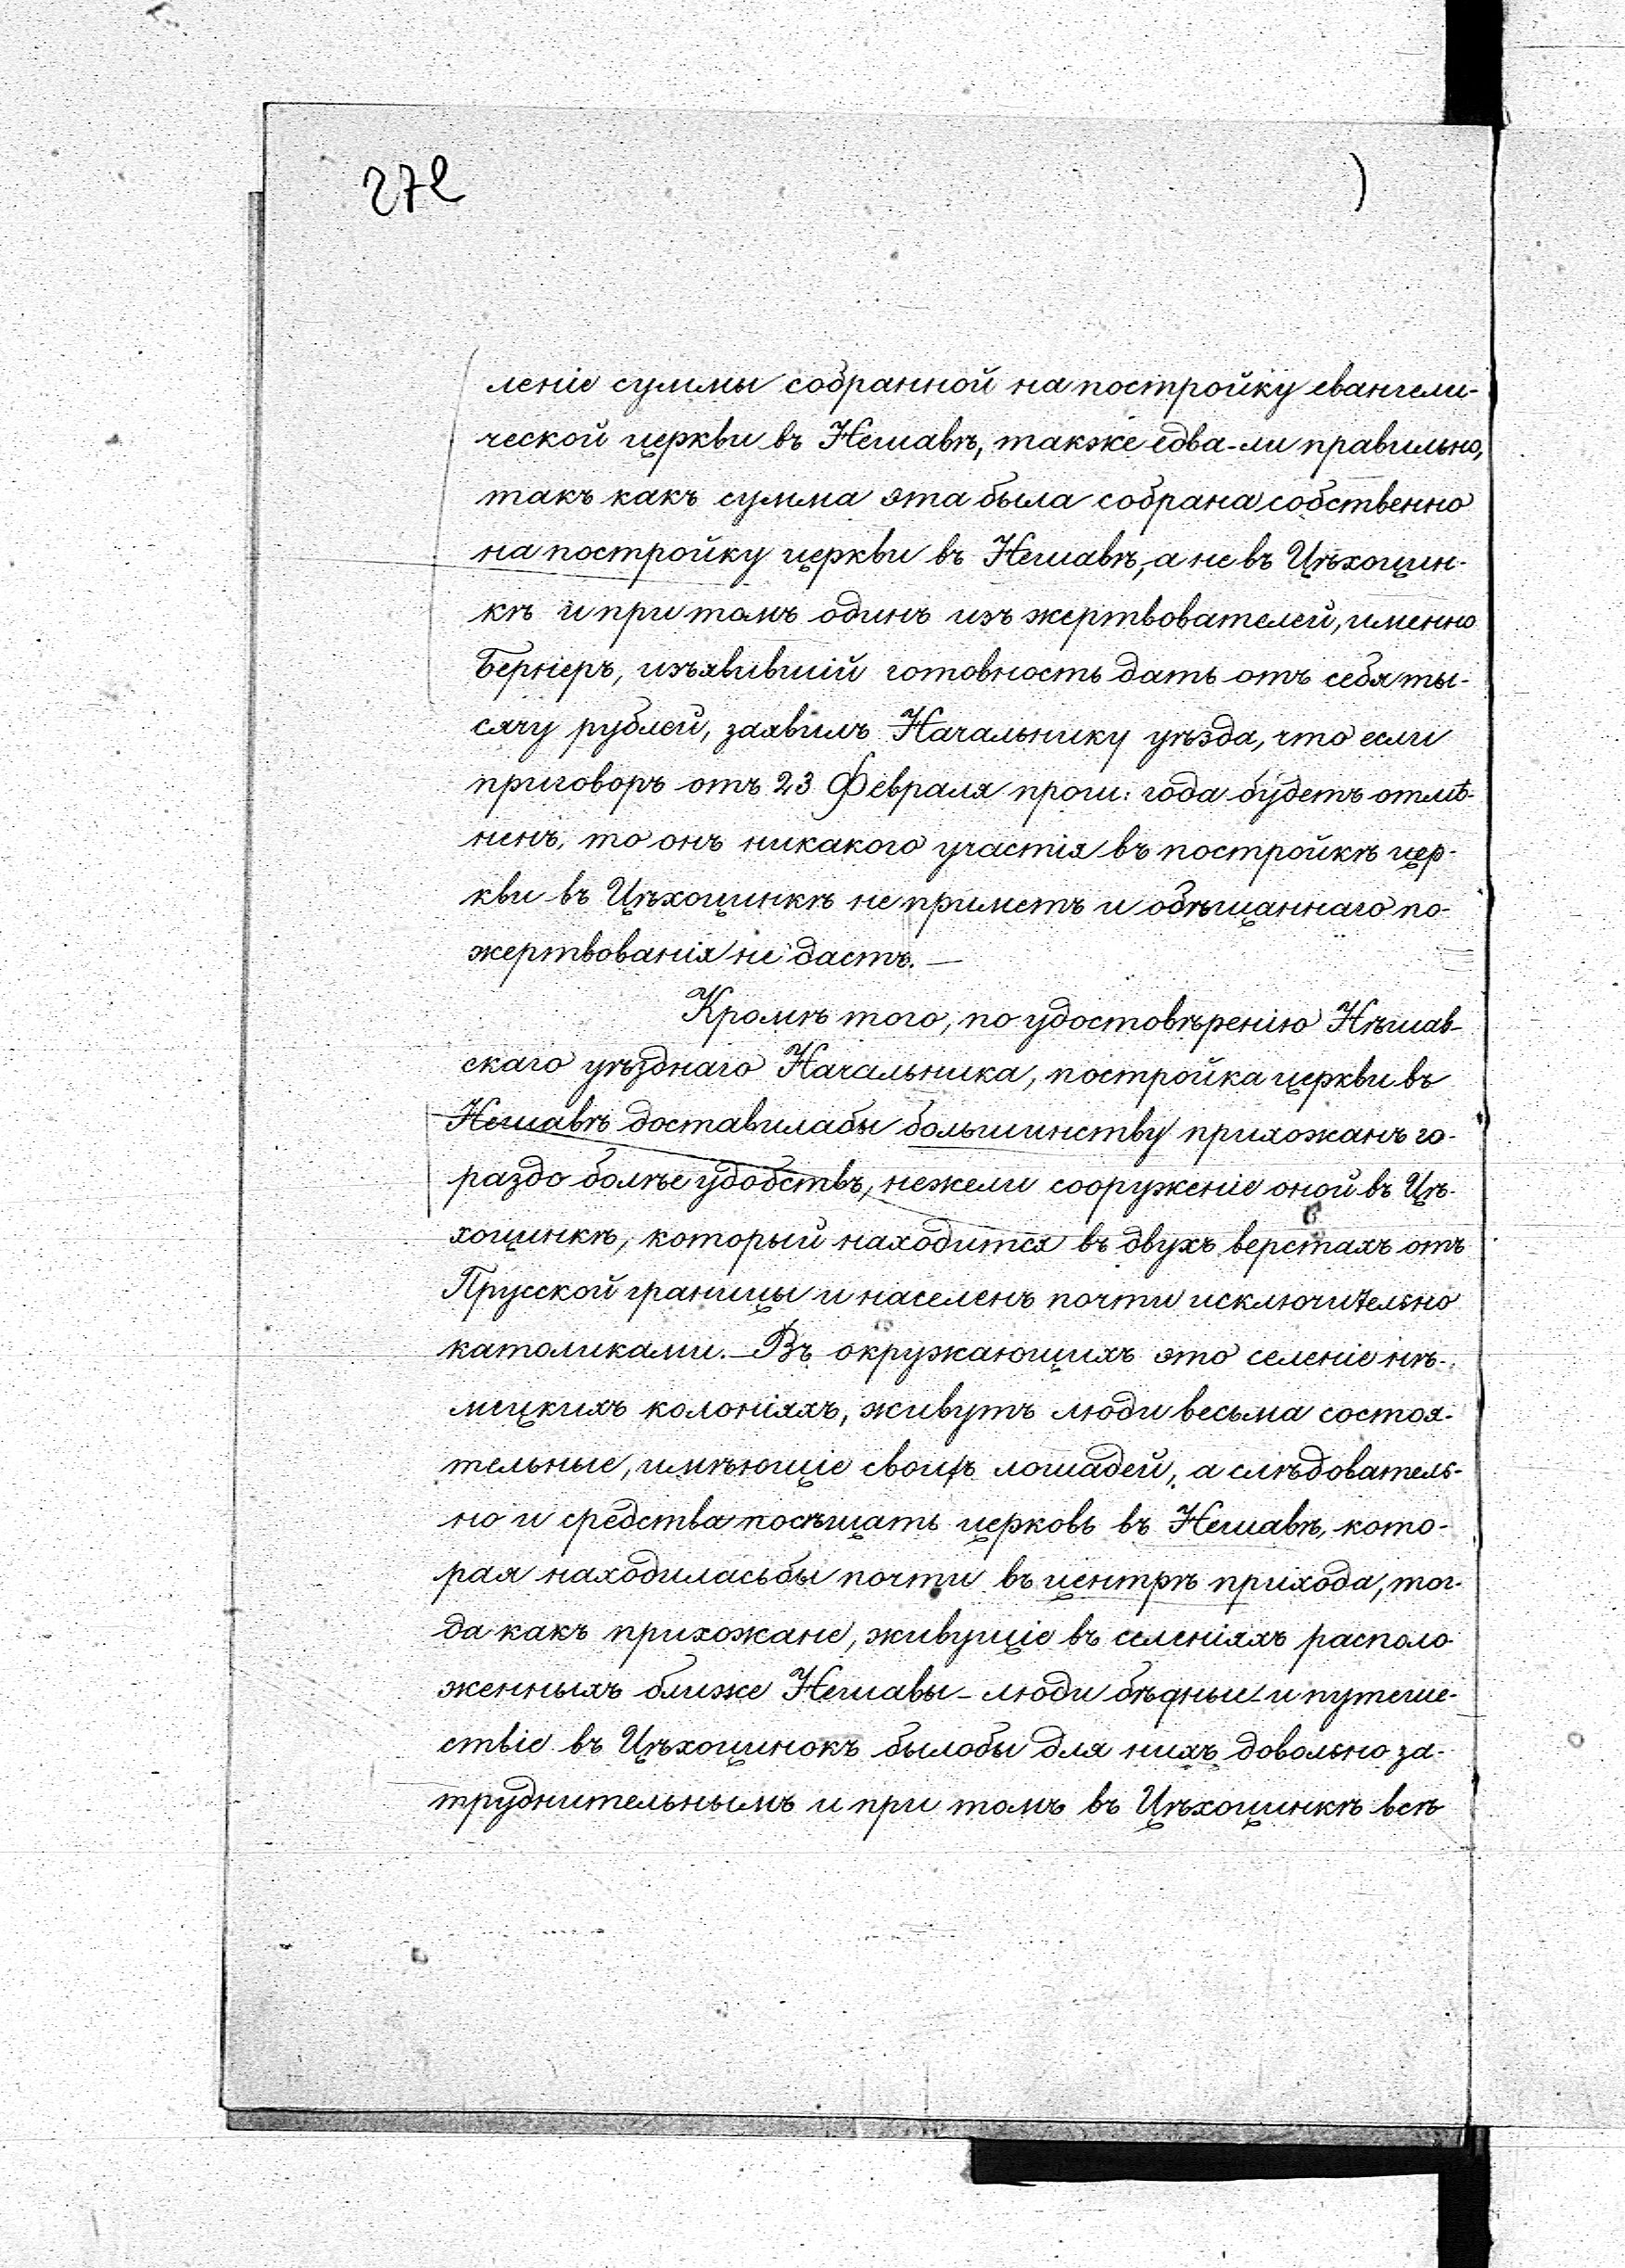 272
леніе суммы собранной на постройку евангели-
ческой церкви въ Нешавѣ, также едва-ли правильно,
такъ какъ сумма эта была собрана собственно
на постройку церкви въ Нешавѣ, а не въ Цѣхоцин-
кѣ и при томъ одинъ изъ жертвователей, именно
Бернеръ, изъявившій готовность дать отъ себя ты-
сячу рублей, заявилъ Начальнику уѣзда, что если
приговоръ отъ 23 Февраля прош: года будетъ отмѣ-
ненъ, то онъ никакого участія въ постройкѣ цер-
кви въ Цѣхоцинкѣ не приметъ и обѣщаннаго по-
жертвованія не дастъ. —
Кромѣ того, по удостовѣренію Нѣшав-
скаго уѣзднаго Начальника, постройка церкви въ
Нешавѣ доставилабы большинству прихожанъ го-
раздо болѣе удобствъ, нежели сооруженіе оной въ Цѣ-
хоцинкѣ, который находится въ двухъ верстахъ отъ
Прусской границы и населенъ почти исключительно
католиками. — Въ окружающихъ это селеніе нѣ-
мецкихъ колоніяхъ, живутъ люди весьма состоя-
тельные, имѣющіе своихъ лошадей, а слѣдователь-
но и средства посѣщать церковь въ Нешавѣ, кото-
рая находиласьбы почти въ центрѣ прихода, тог-
да какъ прихожане, живущіе въ селеніяхъ располо
женныхъ ближе Нешавы – люди бѣдные и путеше-
ствіе въ Цѣхоцинокъ былобы для нихъ довольно за-
труднительнымъ и при томъ въ Цѣхоцинкѣ всѣ